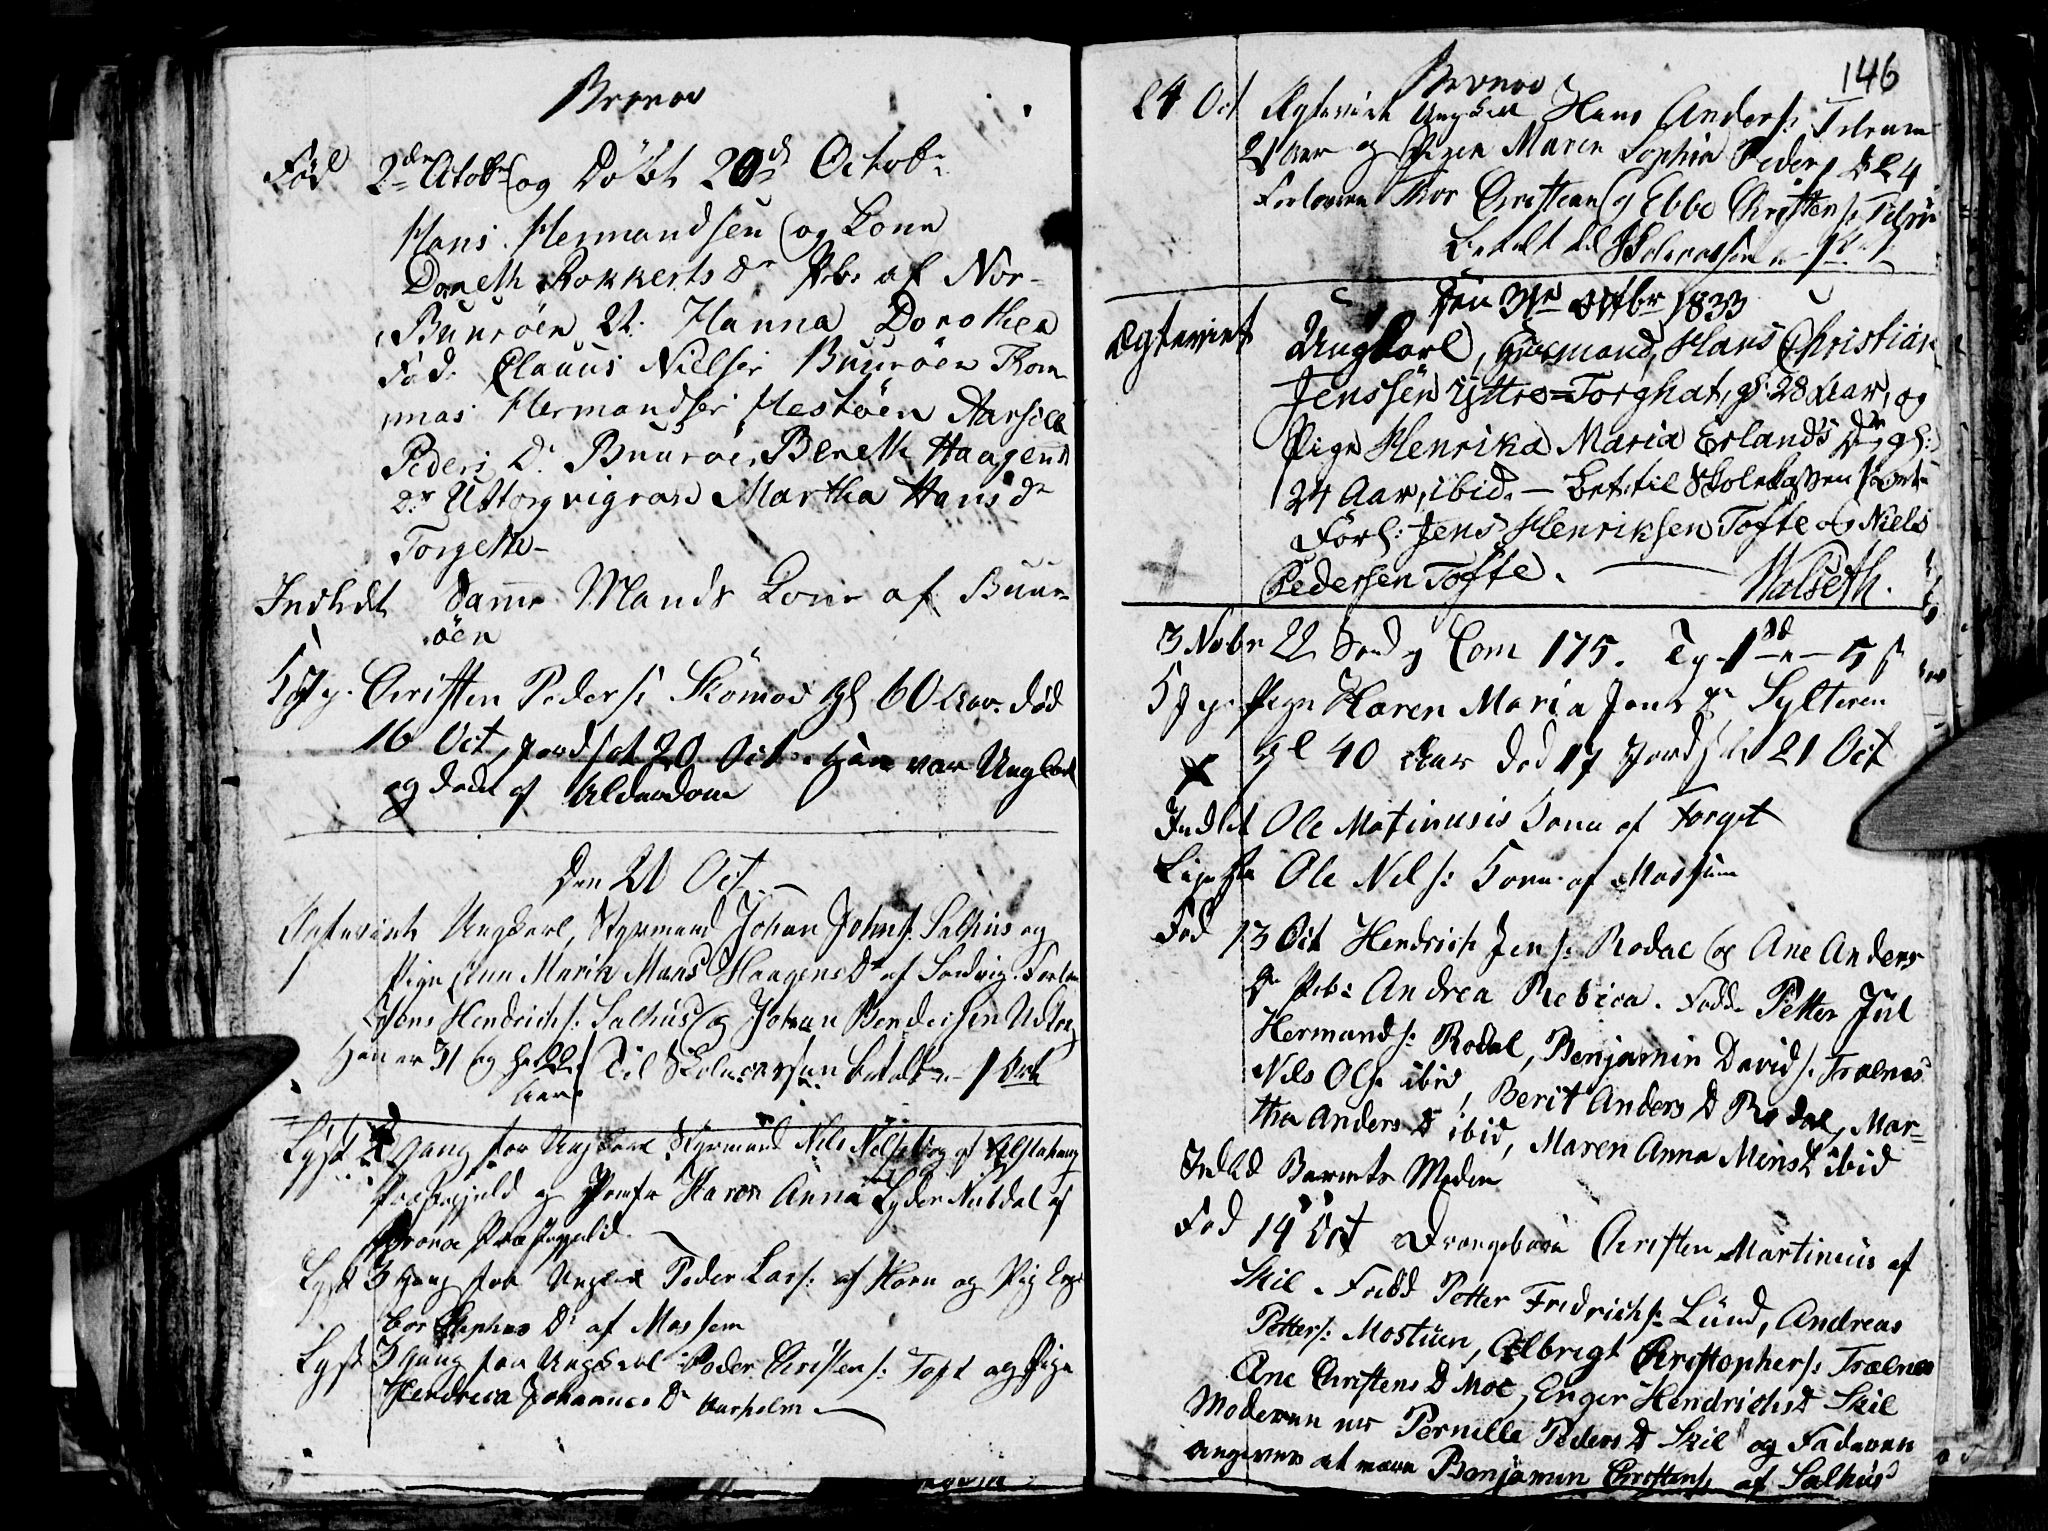 Brønøe
Fød 2den Octobr og Døbt 20d Octobr
Hans Hermandsen og Kone
Doreth Rokkerts Dr Pbr af Nor-
Buurøen Bt. Hanna Dorothea
Fad. Claaus Nielsr Buurøen Thom
mas Hermandsr Hestøen Aarsille
Peders Dr Buurøen, Bereth Haagens
Dr Uttorgvigran Martha Hans Dr
Torgette-
Indledt Samme Mands Kone af Buur-
øen
Christen Peders: Skomoe gl 60 Aar. død
16 Oct, jordsat 20 Oct. Han var Ungkarl
og døde af Alderdom
Den 21 Oct
Ægteviet Ungkarl, Styrmand Johan Johns: Salhus og
Pige Ann Maria Mans Haagens Dr af Sandvig. Forlov
Jens Hendrichs: Salhus og Johan Bendichsen Udtorg
Han er 31 og hun 22 Til Skolecassen betalt - 1 Ort
Aar
Lyst gang for Ungkarl Styrmand Nils Nels af Alstahoug
Præstegield og Jomfr Karen Anna Lyder Nubdal af
Brønøe Præstegield.
Lyst 3 Gang for Ungkarl Peder Lars: af Horn og Pig Inge
bor Stephens Dr af Mossem
Lyst 3 Gang for Ungkarl Peder Christens: Toft og Pige
Hendrica Johannes Dr Aarholm
146
Brønøe
24 Oct Ægteviet Ungkarl Hans Anders: Tilrem
Aar og Pigen Maren Sophia Peders D 24
Forlovere Thor Christians og Ebbe Christens: Tilrem
Betalt til Skolecassen - 1 Ort
Den 31te Octbr 1833
Ægteviet Ungkarl, Huusmand, Hans Christian
Jenssen Yttre-Torghat, gl: 28 Aar, og
Pige Henrika Maria Erlands Dr, gl:
24 Aar, ibid. - Bet. til Skolekassen 1 Ort
Forl: Jens Henriksen Tofte og Niels
Pedersen Tofte. Walseth.
3 Nobr 22 Sond og Com 175. Tg. 1 - 5 s
Pign Karen Maria Jens Dr Sylteren
gl 40 Aar død 17 Jords. 21 Oct
Indlet Ole Matinusis Kone af Torget
Lige saa Ole Nels: Kone af Mossum
Fød 13 Oct Hendrich Jens: Rodal og Ane Anders
Dr Pcb: Andrea Rebica. Fadd Petter Jul
Hermands: Rodal, Benjamin Davids: Trælnes
Nils Ols ibid, Berit Anders D Rodal, Mar-
tha Anders D ibid, Maren Anna Mons D ibid
Indled Barnets Moder
Fød 14 Oct Drengebarn Christen Martinus af
Skil. Fadd Petter Fredrichs: Lund, Andreas
Petters: Mostuen, Albregt Christophers: Trælnes
Ane Christens D Moe, Enger Hendrichs D Skil
Moderen er Pernille Peders D Skil og Faderen
angives at være Benjamin Christens. af Salhus